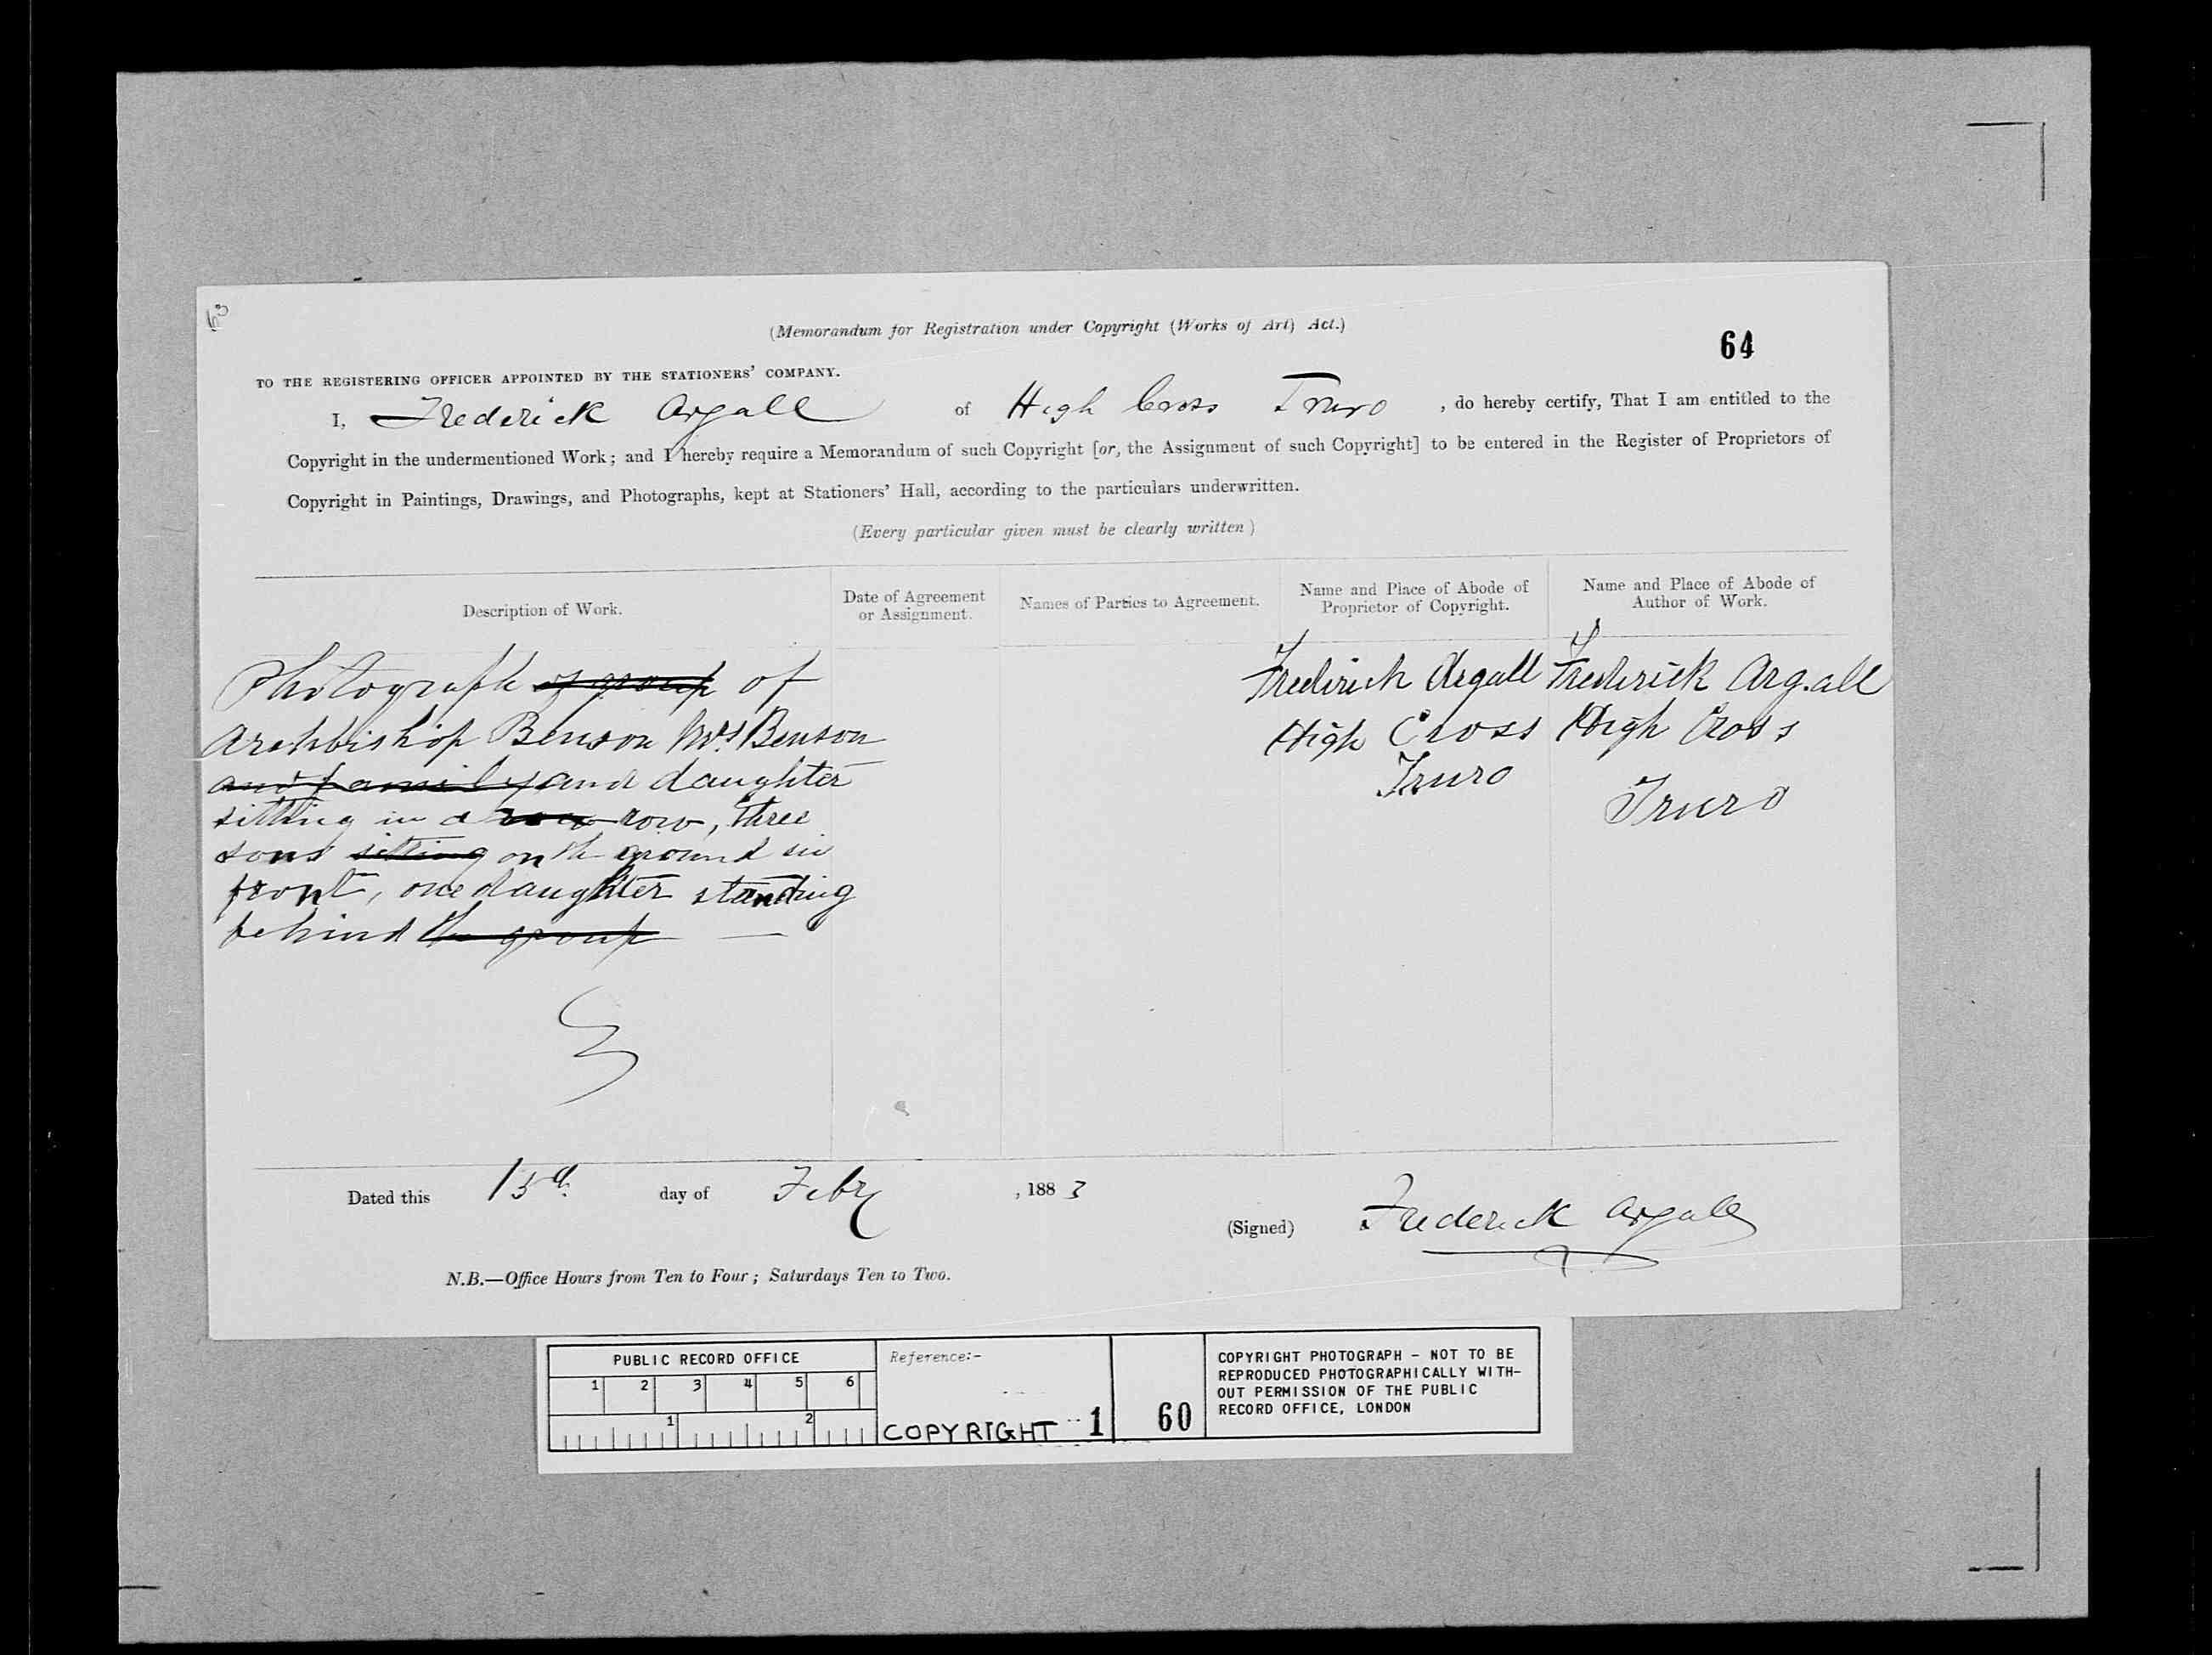 63
(Memorandum for Registration under Copyright (Works of Art) Act.)
64
TO THE REGISTERING OFFICER APPOINTED BY THE STATIONERS' COMPANY.
I, Frederick Argall of High Cross Truro , do hereby certify, That I am entitled to the
Copyright in the undermentioned Work; and I hereby require a Memorandum of such Copyright [or, the Assignment of such Copyright] to be entered in the Register of Proprietors of
Copyright in Paintings, Drawings, and Photographs, kept at Stationers' Hall, according to the particulars underwritten.
(Every particular given must be clearly written)
Description of Work.
Date of Agreement
or Assignment.
Names of Parties to Agreement.
Name and Place of Abode of
Proprietor of Copyright.
Name and Place of Abode of
Author of Work.
Photograph of group of
Archbishop Benson Mrs Benson
and family and daughter
sitting in a row row, three
sons sitting on the ground in
front, one daughter standing
behind the group —
Frederick Argall
High Cross
Truro
Frederick Argall
High Cross
Truro
Dated this 13th day of Febry , 1883
(Signed) Frederick Argall
N.B.—Office Hours from Ten to Four; Saturdays Ten to Two.
PUBLIC RECORD OFFICE
1 2 3 4 5 6
1 2
Reference:-
COPYRIGHT 1
60
COPYRIGHT PHOTOGRAPH - NOT TO BE
REPRODUCED PHOTOGRAPHICALLY WITH-
OUT PERMISSION OF THE PUBLIC
RECORD OFFICE, LONDON